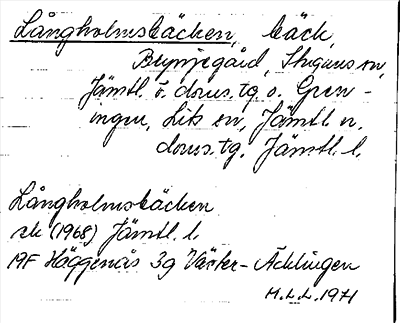 Långholmsbäcken, bäck,
Brynjegård, Stuguns sn,
Jämtl. ö. doms.tg o. Gren-
ingen, Lits sn, Jämtl. n.
doms.tg. Jämtl. l.
Långholmsbäcken
ek (1968) Jämtl. l.
19F Häggenås 3g Väster-Äcklingen
H.L.L. 1971